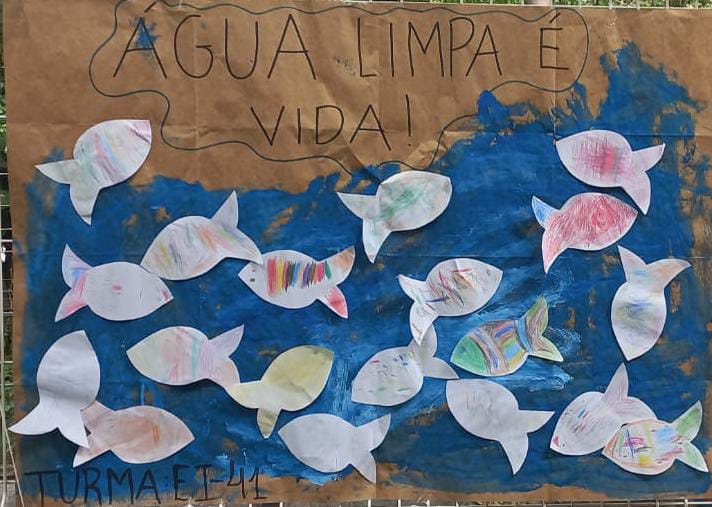 ÁGUA LIMPA É
VIDA!
TURMA: EI-41